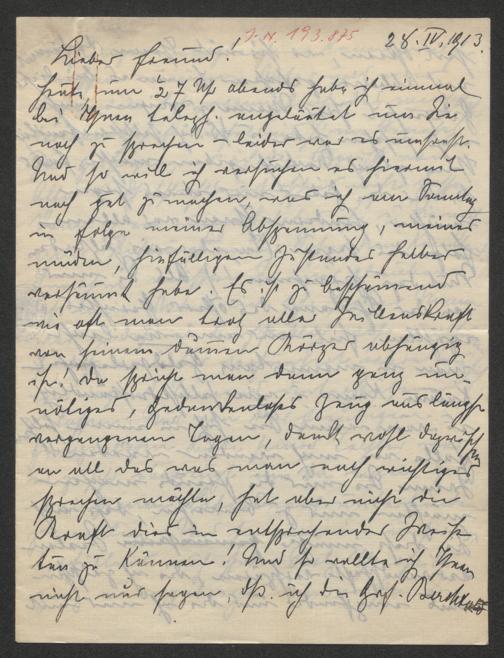 J. N. 193.875
28. IV. 1913.
Lieber Freund!
Heute um ½ 7 Uhr abends habe ich einmal
bei Ihnen teleph. angeläutet um Sie
noch zu sprechen – leider war es umsonst.
Und so will ich versuchen es hiermit
noch gut zu machen, was ich am Sonntag
in Folge meiner Abspannung, meines
müden, hinfälligen Zustandes halber
versäumt habe. Es ist zu beschämend
wie oft man trotz aller Willenskraft
von seinem dummen Körper abhängig
ist! Da spricht man dann ganz un-
nötiges, gedankenloses Zeug aus längst
vergangenen Tagen, denkt wohl dazwischen
an all das was man noch wichtiges
sprechen möchte, hat aber nicht die
Kraft dies in entsprechender Weise
tun zu können! Und so wollte ich Ihnen
nicht nur sagen, dß ich die Grf.